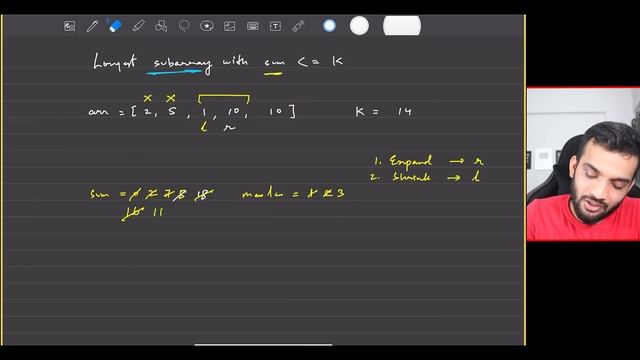 Longest subarray with sum <= K
x x
arr = [ 2, 5, 1, 10, 10 ] K = 14
l r
1. Expand → r
2. Shrink → l
sum = 0 2 7 8 18 maxlen = 1 2 3
16 11